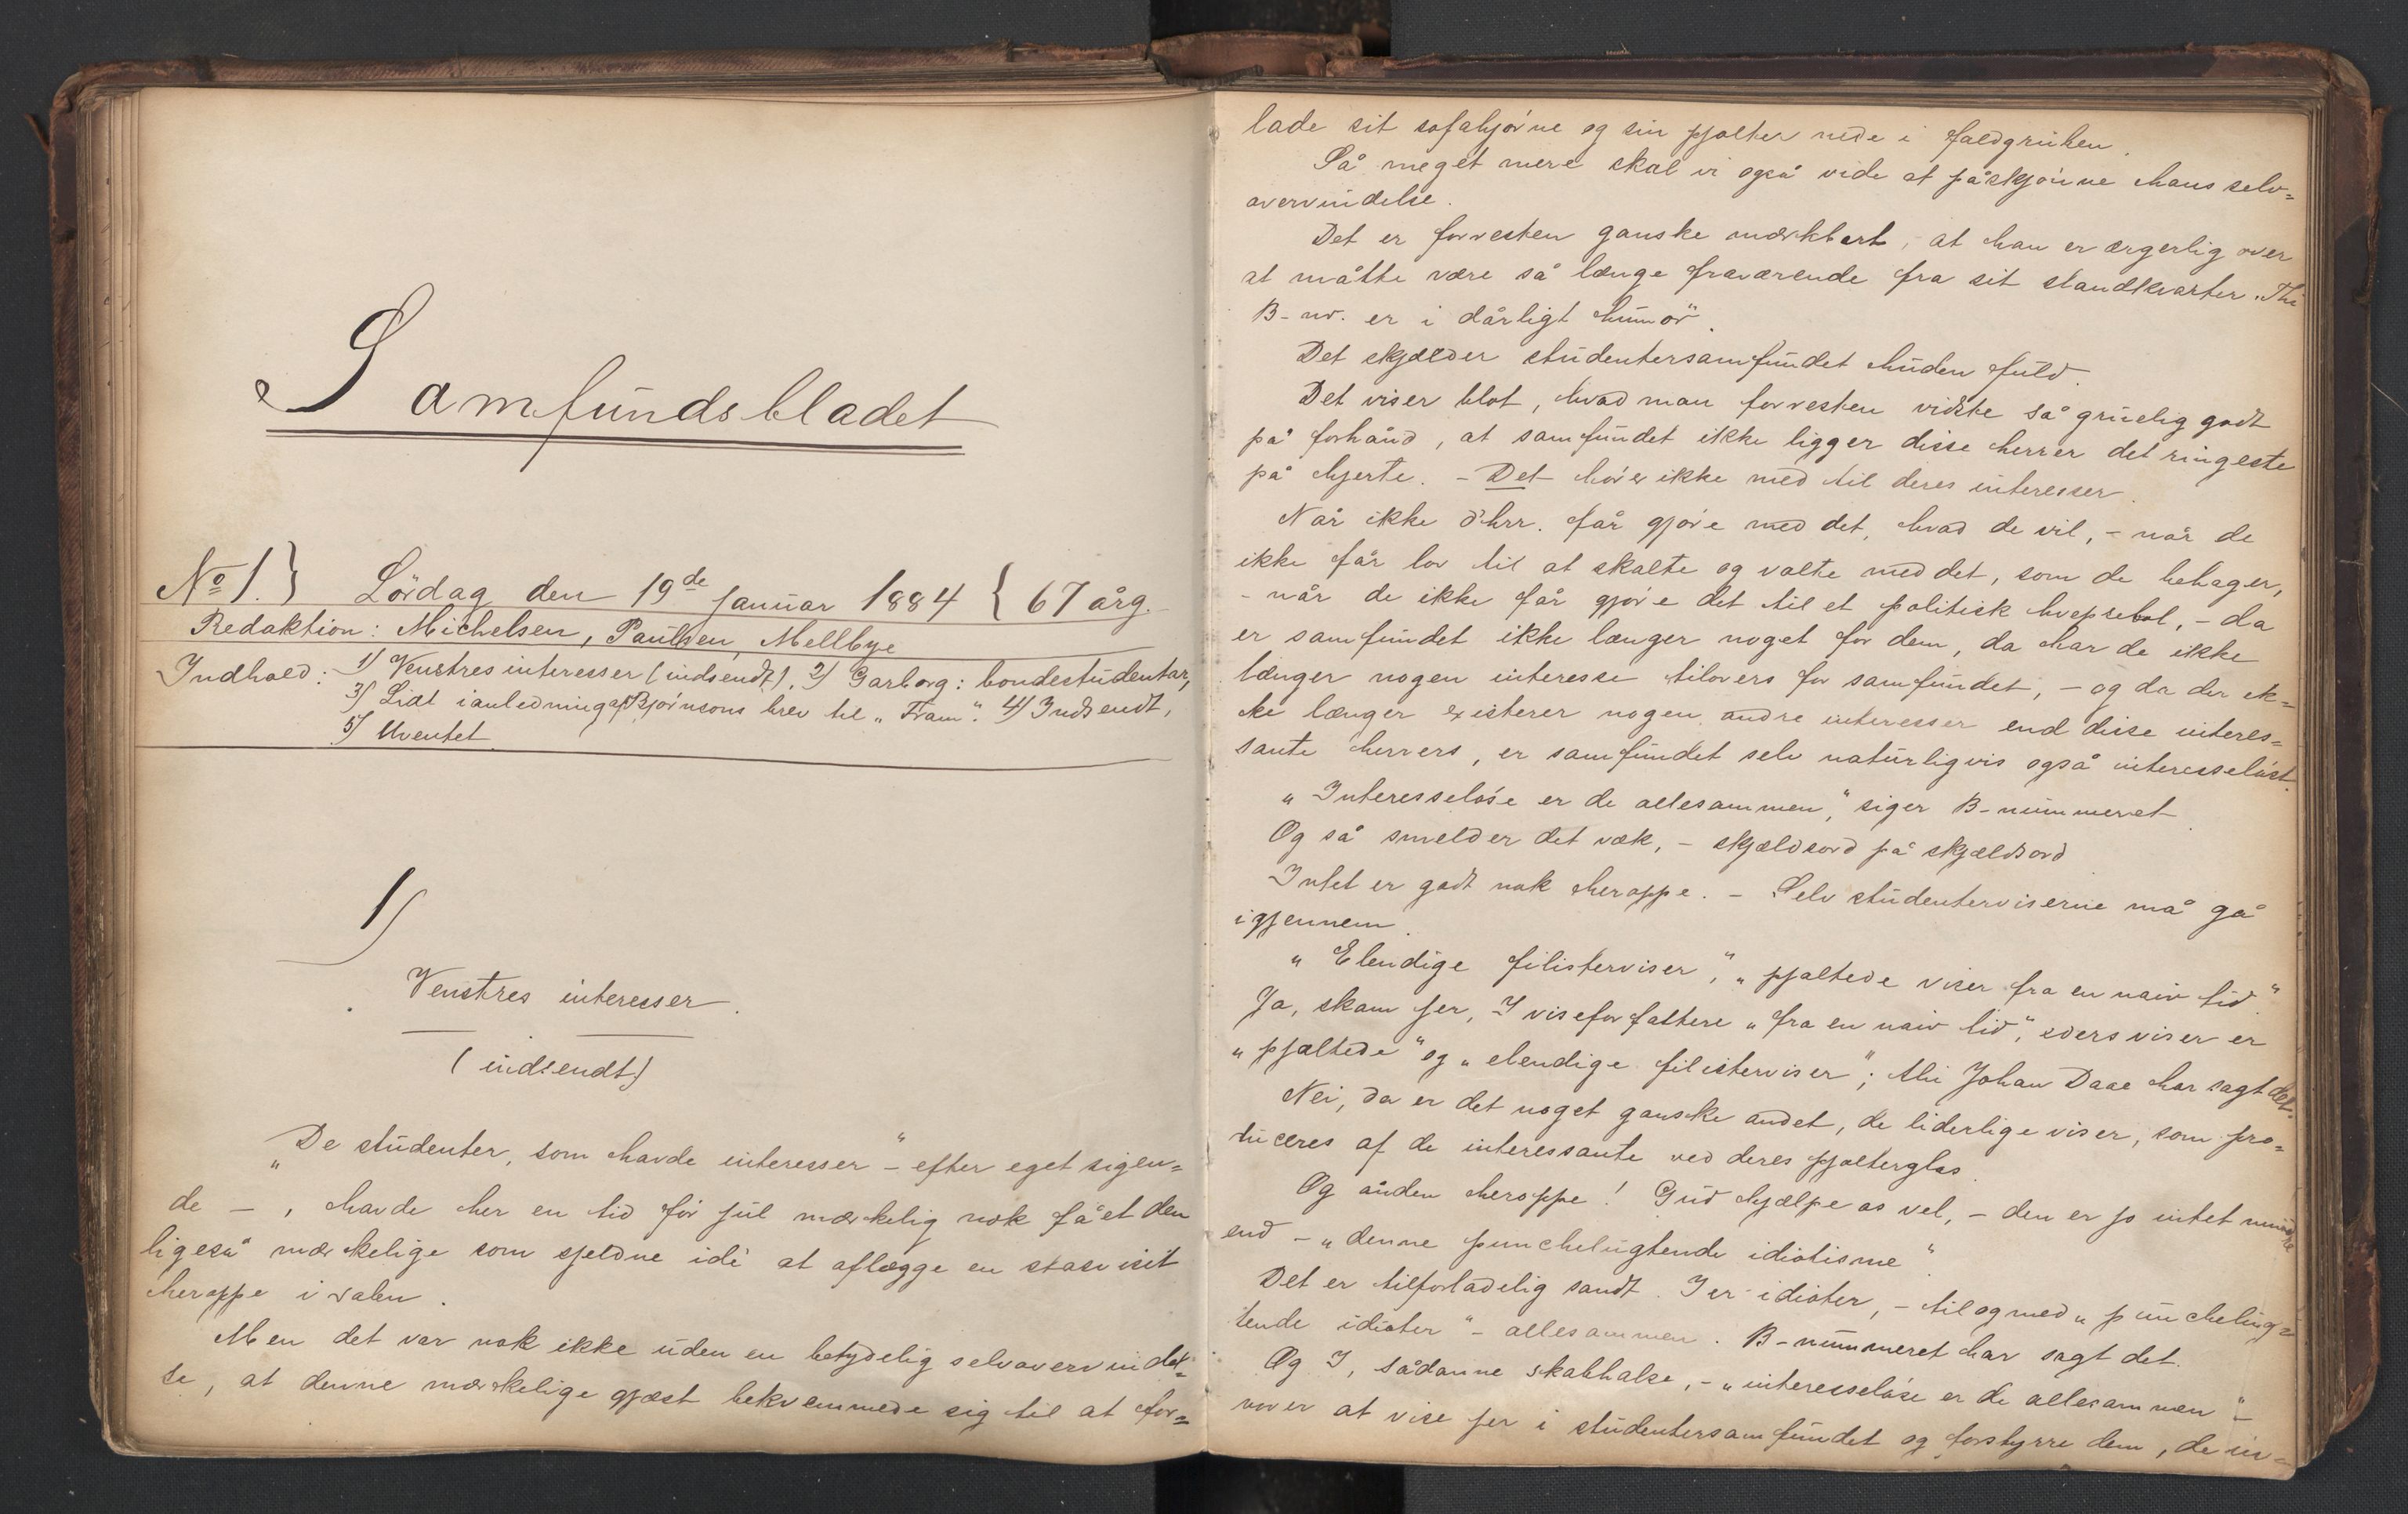 Samfundsbladet
No 1.} Lördag den 19de Januar 1884 { 67 årg.
Redaktion: Michelsen, Paulsen, Mellbye
Indhold: 1) Venstres interesser (indsendt), 2) Garborg: bondestudentar,
3) Lidt i anledning af Bjørnsons brev til „Fram". 4) Indsendt,
5) Uventet
1)
Venstres interesser.
(indsendt)
„De studenter, som havde interesser" – efter eget sigen=
de –, havde her en tid før jul mærkelig nok fået den
ligeså mærkelige som sjeldne idé at aflægge en stasvisit
heroppe i salen.
Men det var nok ikke uden en betydelig selvovervindel=
se, at denne mærkelige gjæst bekvemmede sig til at for=
lade sit sofahjørne og sin pjolter nede i faldgruben.
Så meget mere skal vi også vide at påskjønne hans selv=
overvindelse.
Det er forresten ganske mærkbart, at han er ærgerlig over
at måtte være så længe fraværende fra sit standkvarter. Thi
B-nr. er i dårligt humør.
Det skjælder studentersamfundet huden fuld.
Det viser blot, hvad man forresten vidste så gruelig godt
på forhånd, at samfundet ikke ligger disse herrer det ringeste
på hjerte. – Det hører ikke med til deres interesser.
Når ikke d'hrr. får gjøre med det, hvad de vil, – når de
ikke får lov til at skalte og valte med det, som de behager,
– når de ikke får gjøre det til et politisk hvepsebol, – da
er samfundet ikke længer noget for dem, da har de ikke
længer nogen interesse tilovers for samfundet, – og da der ik=
ke længer existerer nogen andre interesser end disse interes=
sante herrers, er samfundet selv naturligvis også interesseløst.
„Interesseløse er de allesammen," siger B-nummeret
Og så smelder det væk, – skjældsord på skjældsord
Intet er godt nok heroppe. – Selv studenterviserne må gå
igjennem.
„Elendige filisterviser", „pjaltede viser fra en naiv tid"
Ja, skam jer, I viseforfattere „fra en naiv tid", eders viser er
„pjaltede" og „elendige filisterviser"; thi Johan Daae har sagt det.
Nei, da er det noget ganske andet, de liderlige viser, som pro=
duceres af de interessante ved deres pjolterglas.
Og ånden heroppe! Gud hjælpe os vel, – den er jo intet mindre
end – „denne punchelugtende idiotisme"
Det er tilforladelig sandt. I er idioter, – til og med „punchelug=
tende idioter" – allesammen. B-nummeret har sagt det.
Og I, sådanne skabhalse, – „interesseløse er de allesammen" –
vover at vise jer i studentersamfundet og forstyrre dem, de in=